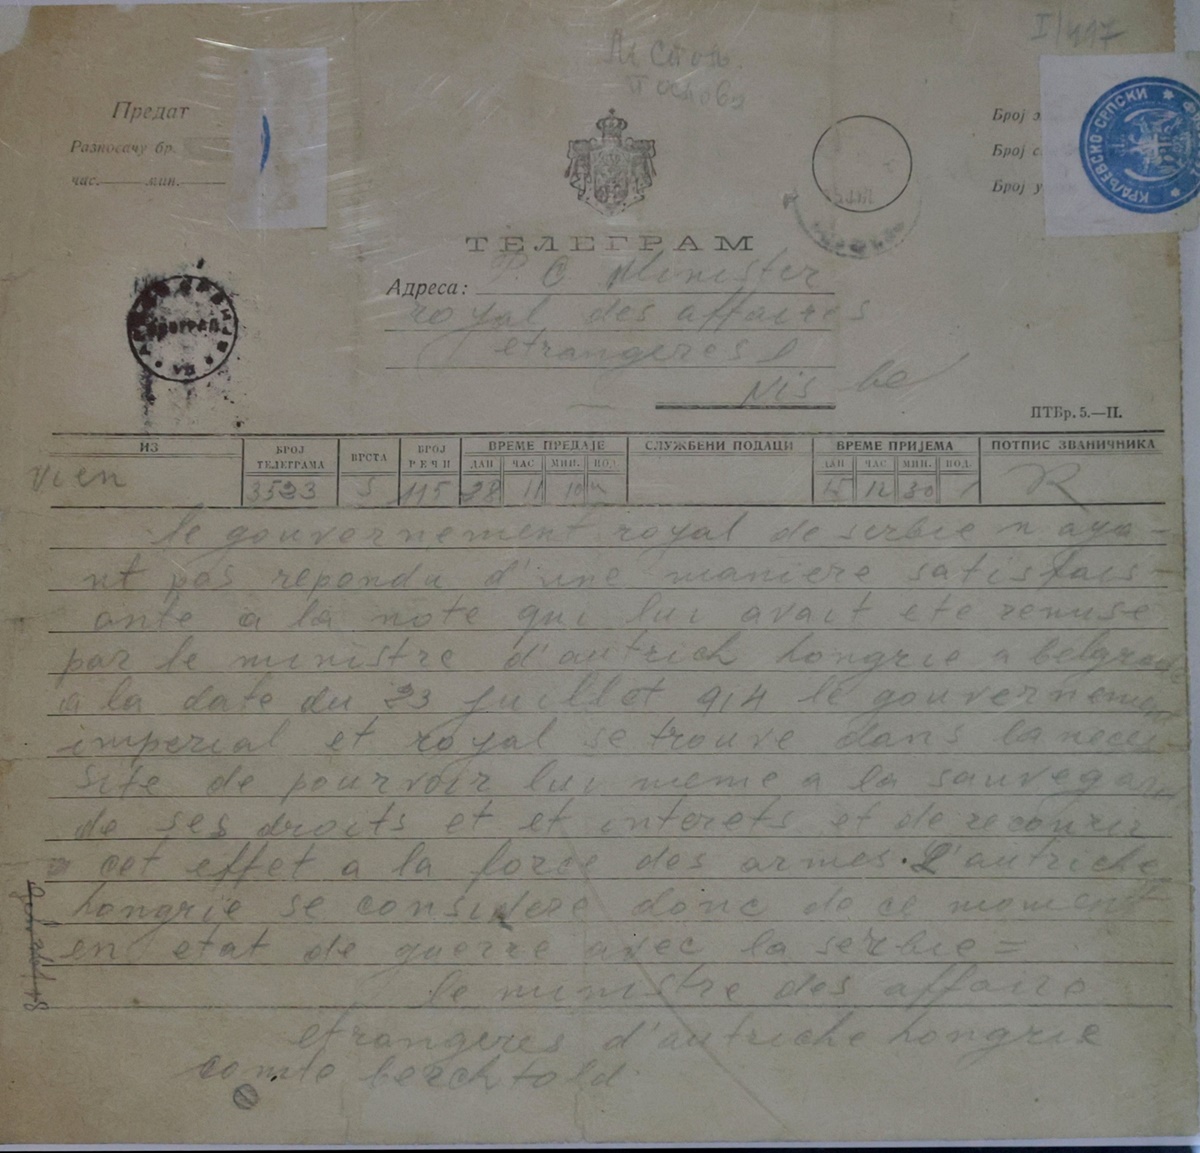 I/417
Предат
Разносачу бр.
час. мин.
Број
Број с
Број у
КРАЉЕВСКО-СРПСКИ
ТЕЛЕГРАМ
Адреса: P C Minister
royal des affaires
etrangeres
Nis be
БЕОГРАД
VII
ПТБр. 5.—II.
ИЗ
БРОЈ ТЕЛЕГРАМА
ВРСТА
БРОЈ РЕЧИ
ВРЕМЕ ПРЕДАЈЕ
СЛУЖБЕНИ ПОДАЦИ
ВРЕМЕ ПРИЈЕМА
ПОТПИС ЗВАНИЧНИКА
ДАН ЧАС МИН. ПОД.
ДАН ЧАС МИН. ПОД.
Vien 3523 5 115 28 11 10 15 12 30 R
le gouvernement royal de serbie n aya-
nt pas reponda d'une maniere satisfais-
ante a la note qui lui avait ete remise
par le ministre d'autrich hongrie a belgrad
a la date du 23 juillot 914 le gouvernement
imperial et royal se trouve dans la neces-
site de pourvoir lui meme a la sauvegar
de ses droits et et interets et de recourir
a cet effet a la force des armes. L'autriche
hongrie se considere donc de ce moment
en etat de guerre avec la serbie =
le ministre des affairs
etrangeres d'autriche hongrie
comte berchtold